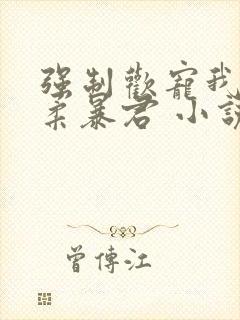 強制歡寵我
柔暴君 小說
曾傳江